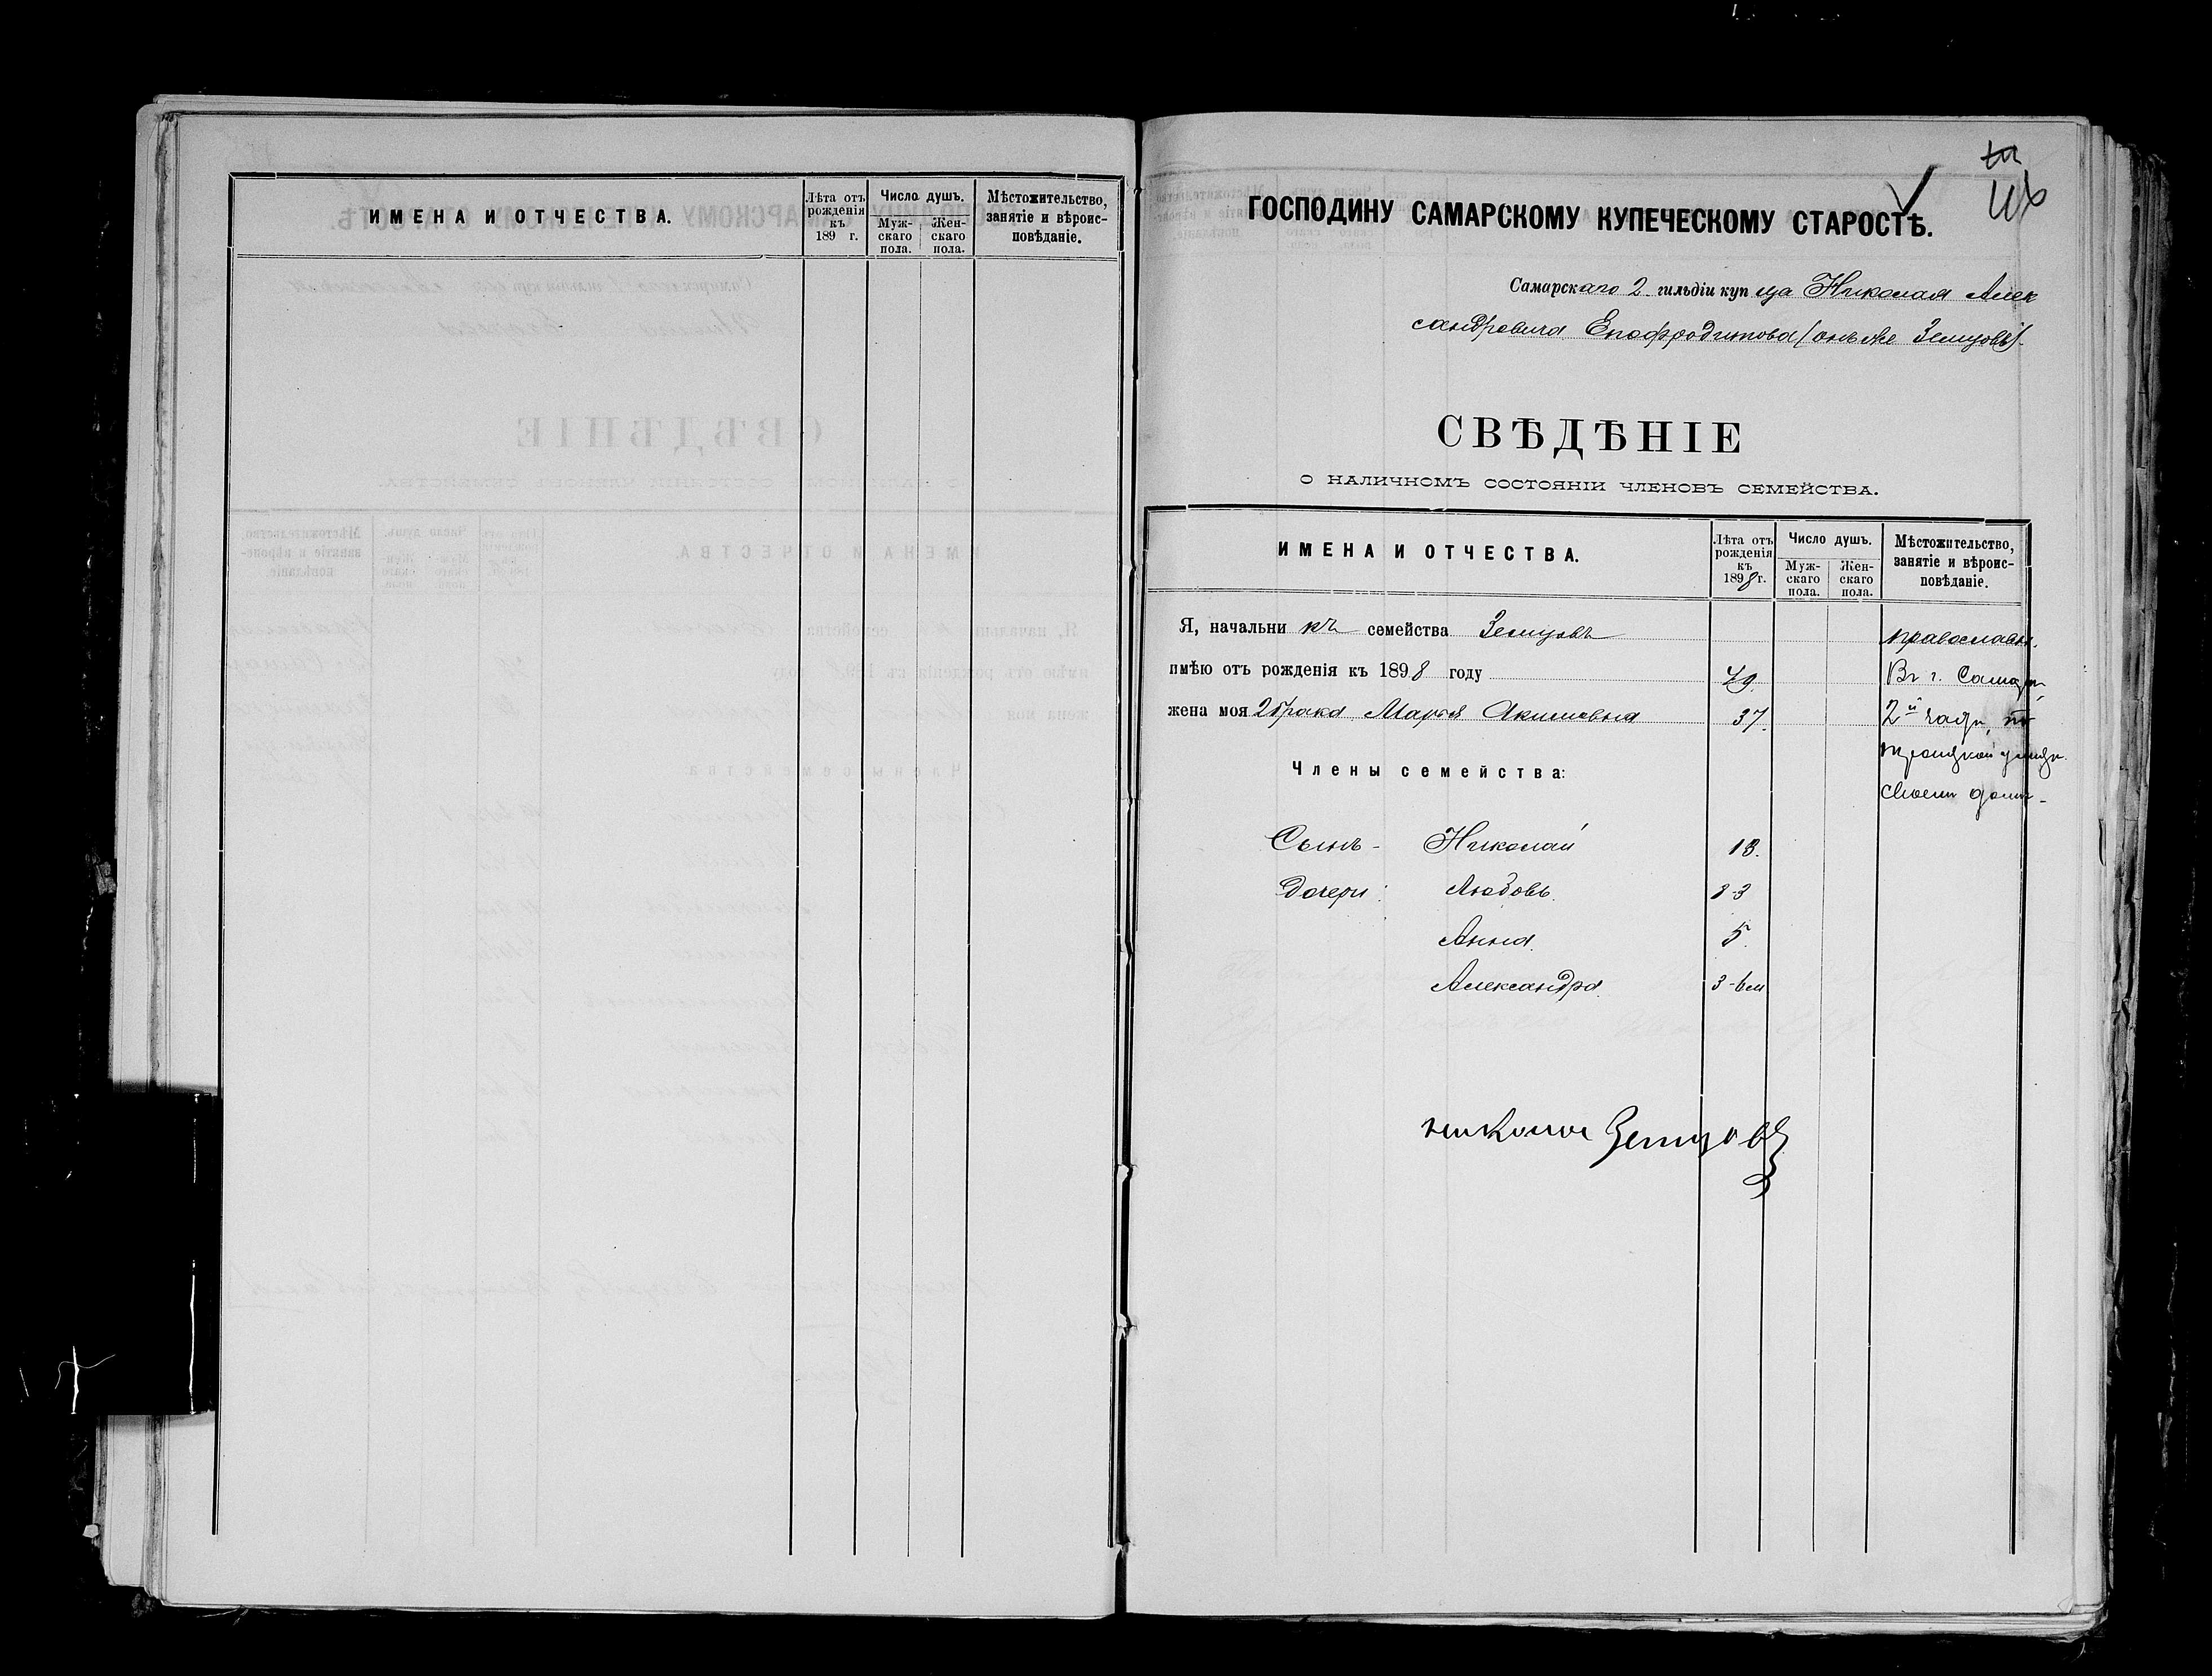 ИМЕНА И ОТЧЕСТВА.
Лѣта отъ рожденія къ 189 г.
Число душъ.
Муж-скаго пола.
Жен-скаго пола.
Мѣстожительство, занятіе и вѣроис-повѣданіе.
ГОСПОДИНУ САМАРСКОМУ КУПЕЧЕСКОМУ СТАРОСТѢ.
Самарскаго 2 гильдіи купца Николая Алек
сандровича Епафродитова (онъ же Земцовъ).
СВѢДѢНІЕ
О НАЛИЧНОМЪ СОСТОЯНІИ ЧЛЕНОВЪ СЕМЕЙСТВА.
ИМЕНА И ОТЧЕСТВА.
Лѣта отъ рожденія къ 1898 г.
Число душъ.
Муж-скаго пола.
Жен-скаго пола.
Мѣстожительство, занятіе и вѣроис-повѣданіе.
Я, начальникъ семейства Земцовъ православн.
имѣю отъ рожденія къ 1898 году 49. Въ г. Самарѣ
жена моя 2 брака Марья Акимовна 37. 2й части, по
Троицкой улицѣ
Члены семейства:
своемъ домѣ
Сынъ - Николай 13.
Дочери: Любовь.
Анна. 5.
Александра. 3-6 м
Николай Земцовъ